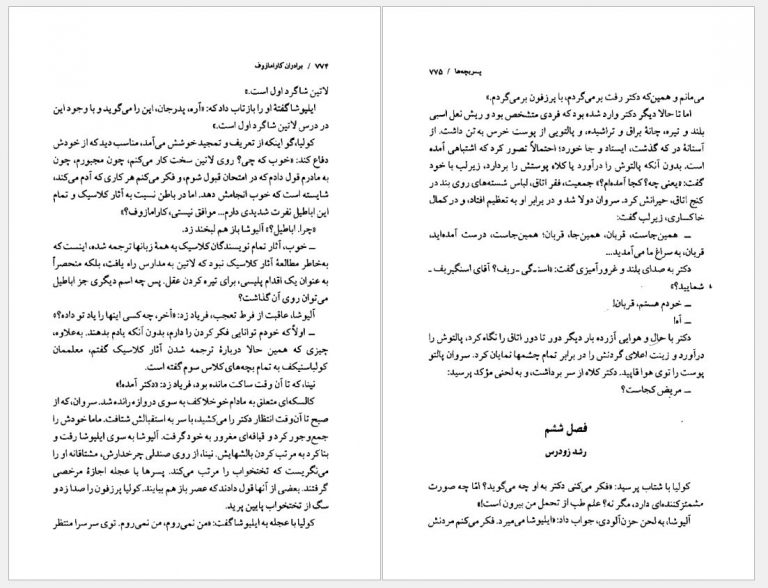 ۷۷۴ / برادران کارامازوف
لاتین شاگرد اول است.»
ایلیوشا گفتهٔ او را بازتاب داد که: «آره، پدرجان، این را می‌گوید و با وجود این
در درس لاتین شاگرد اول است.»
کولیا، گو اینکه از تعریف و تمجید خوشش می‌آمد، مناسب دید که از خودش
دفاع کند: «خوب که چی؟ روی لاتین سخت کار می‌کنم، چون مجبورم، چون
به مادرم قول دادم که در امتحان قبول شوم، و فکر می‌کنم هر کاری که آدم می‌کند،
شایسته است که خوب انجامش دهد. اما در باطن نسبت به آثار کلاسیک و تمام
این اباطیل نفرت شدیدی دارم... موافق نیستی، کارامازوف؟»
«چرا. اباطیل؟» آلیوشا باز هم لبخند زد.
ــ خوب، آثار تمام نویسندگان کلاسیک به همهٔ زبانها ترجمه شده، اینست که
به‌خاطر مطالعهٔ آثار کلاسیک نبود که لاتین به مدارس راه یافت، بلکه منحصراً
به عنوان یک اقدام پلیسی، برای تیره کردن عقل. پس چه اسم دیگری جز اباطیل
می‌توان روی آن گذاشت؟
آلیوشا، عاقبت از فرط تعجب، فریاد زد: «آخر، چه کسی اینها را یاد تو داده؟»
ــ اولاً که خودم توانایی فکر کردن را دارم، بدون آنکه یادم بدهند. به‌علاوه،
چیزی که همین حالا دربارهٔ ترجمه شدن آثار کلاسیک گفتم، معلممان
کولباسنیکف به تمام بچه‌های کلاس سوم گفته است.
نینا، که تا آن وقت ساکت مانده بود، فریاد زد: «دکتر آمده!»
کالسکه‌ای متعلق به مادام خوخلاکف به سوی دروازه رانده شد. سروان، که از
صبح تا آن‌وقت انتظار دکتر را می‌کشید، با سر به استقبالش شتافت. ماما خودش را
جمع‌وجور کرد و قیافه‌ای مغرور به خود گرفت. آلیوشا به سوی ایلیوشا رفت و
بنا کرد به مرتب کردن بالشهایش. نینا، از روی صندلی چرخدارش، مشتاقانه او را
می‌نگریست که تختخواب را مرتب می‌کند. پسرها با عجله اجازهٔ مرخصی
گرفتند. بعضی از آنها قول دادند که عصر باز هم بیایند. کولیا پرزفون را صدا زد و
سگ از تختخواب پایین پرید.
کولیا با عجله به ایلیوشا گفت: «من نمی‌روم، من نمی‌روم. توی سرسرا منتظر
پسربچه‌ها / ۷۷۵
می‌مانم و همین‌که دکتر رفت برمی‌گردم، با پرزفون برمی‌گردم.»
اما تا حالا دیگر دکتر وارد شده بود که فردی متشخص بود و ریش نعل اسبی
بلند و تیره، چانهٔ براق و تراشیده، و پالتویی از پوست خرس به تن داشت. از
آستانهٔ در که گذشت، ایستاد و جا خورد؛ احتمالاً تصور کرد که اشتباهی آمده
است. بدون آنکه پالتوش را درآورد یا کلاه پوستش را بردارد، زیرلب با خود
گفت: «یعنی چه؟ کجا آمده‌ام؟» جمعیت، فقر اتاق، لباس شسته‌های روی بند در
کنج اتاق، حیرانش کرد. سروان دولا شد و در برابر او به تعظیم افتاد، و در کمال
خاکساری، زیرلب گفت:
ــ همین‌جاست، قربان، همین‌جا، قربان؛ همین‌جاست، درست آمده‌اید،
قربان، به سراغ ما آمدید...
دکتر به صدای بلند و غرورآمیزی گفت: «اسنـگی ـ ریف؟ آقای اسنگیریف ـ
شمایید؟»
ــ خودم هستم، قربان!
ــ آه!
دکتر با حال و هوایی آزرده بار دیگر دور تا دور اتاق را نگاه کرد، پالتوش را
درآورد و زینت اعلای گردنش را در برابر تمام چشمها نمایان کرد. سروان پالتو
پوست را توی هوا قاپید. دکتر کلاه از سر برداشت، و به لحنی مؤکد پرسید:
ــ مریض کجاست؟
فصل ششم
رشد زودرس
کولیا با شتاب پرسید: «فکر می‌کنی دکتر به او چه می‌گوید؟ امّا چه صورت
مشمئزکننده‌ای دارد، مگر نه؟ علم طب از تحمل من بیرون است!»
آلیوشا، به لحن حزن‌آلودی، جواب داد: «ایلیوشا می‌میرد. فکر می‌کنم مردنش